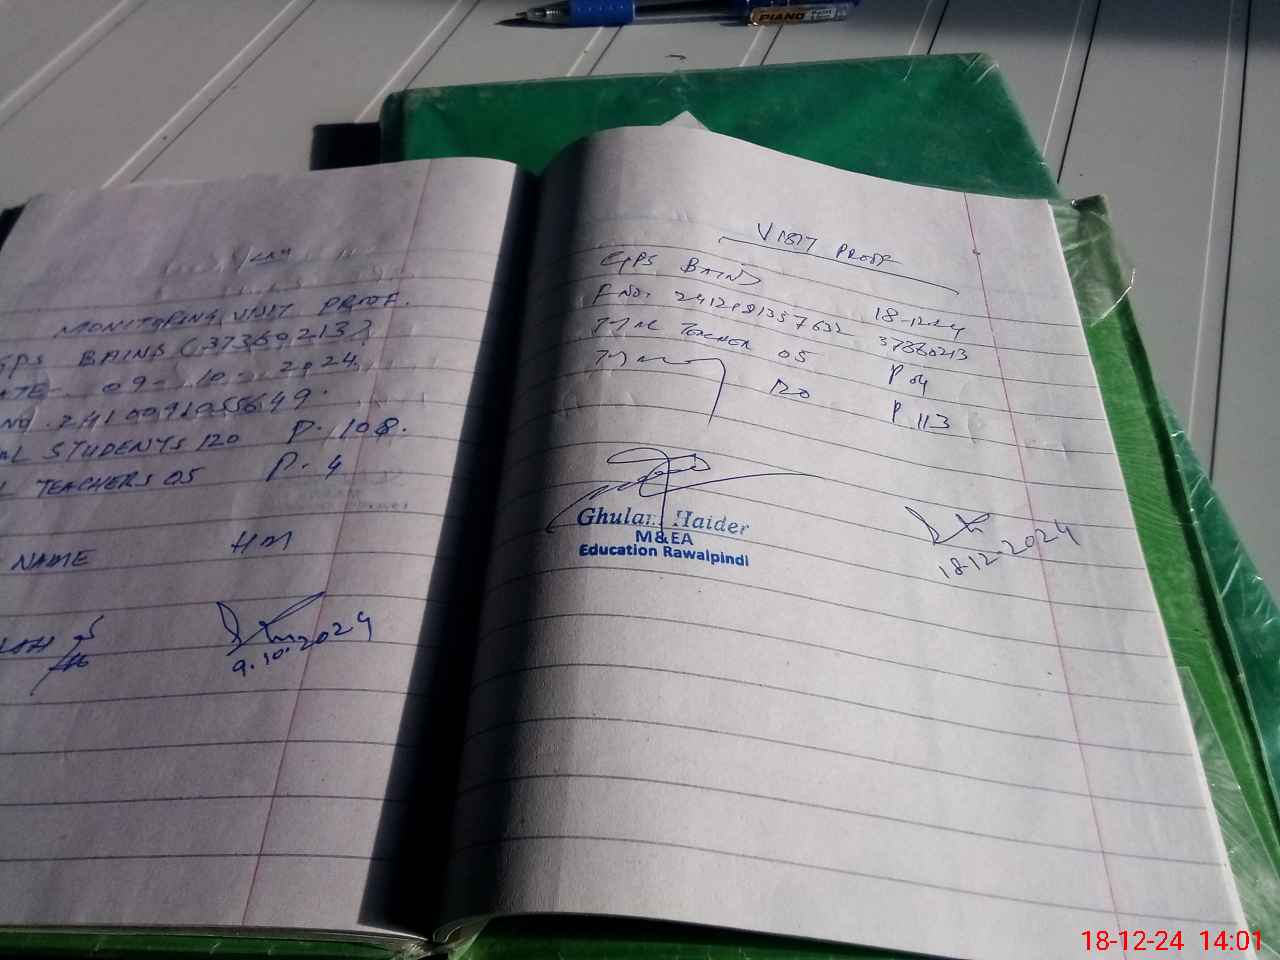 PIANO
MONITORING VISIT PROOF.
GPS BAINS (37360213)
ATE- 09-10-2024
NO. 2410091055649.
AL STUDENTS 120 P. 108.
L TEACHERS 05 P. 4
NAME HM
9.10.2024
VISIT PROOF
GPS BAINS 18-12-24
F NO. 37360213
TEACHER 05 P 04
120 P 113
Ghulam Haider
M&EA
Education Rawalpindi
18-12-2024
18-12-24 14:01